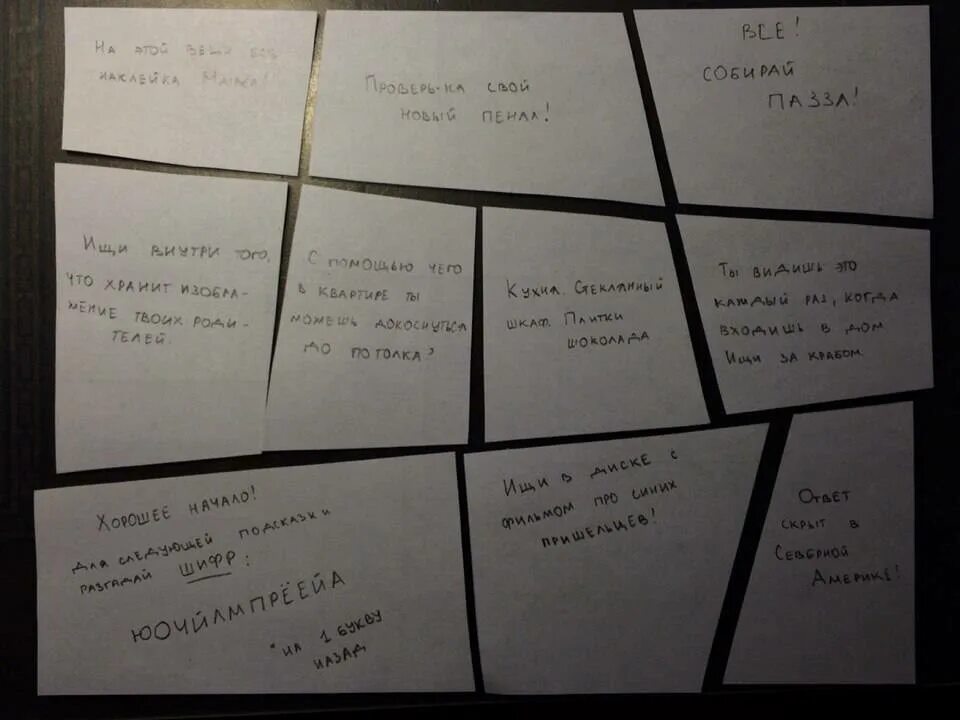 На этой вещи есть
наклейка
Проверь-ка свой
новый пенал!
ВСЕ!
СОБИРАЙ
ПАЗЗЛ!
Ищи внутри того,
что хранит изобра-
жение твоих роди-
телей.
С помощью чего
в квартире ты
можешь докоснуться
до потолка?
Кухня. Стеклянный
шкаф. Плитки
шоколада
Ты видишь это
каждый раз, когда
входишь в дом
Ищи за крабом.
Хорошее начало!
Для следующей подсказки
разгадай шифр:
ЮОЧЙЛМПРЁЕЙА
*на 1 букву
назад
Ищи в диске с
фильмом про синих
пришельцев!
Ответ
скрыт в
Северной
Америке!